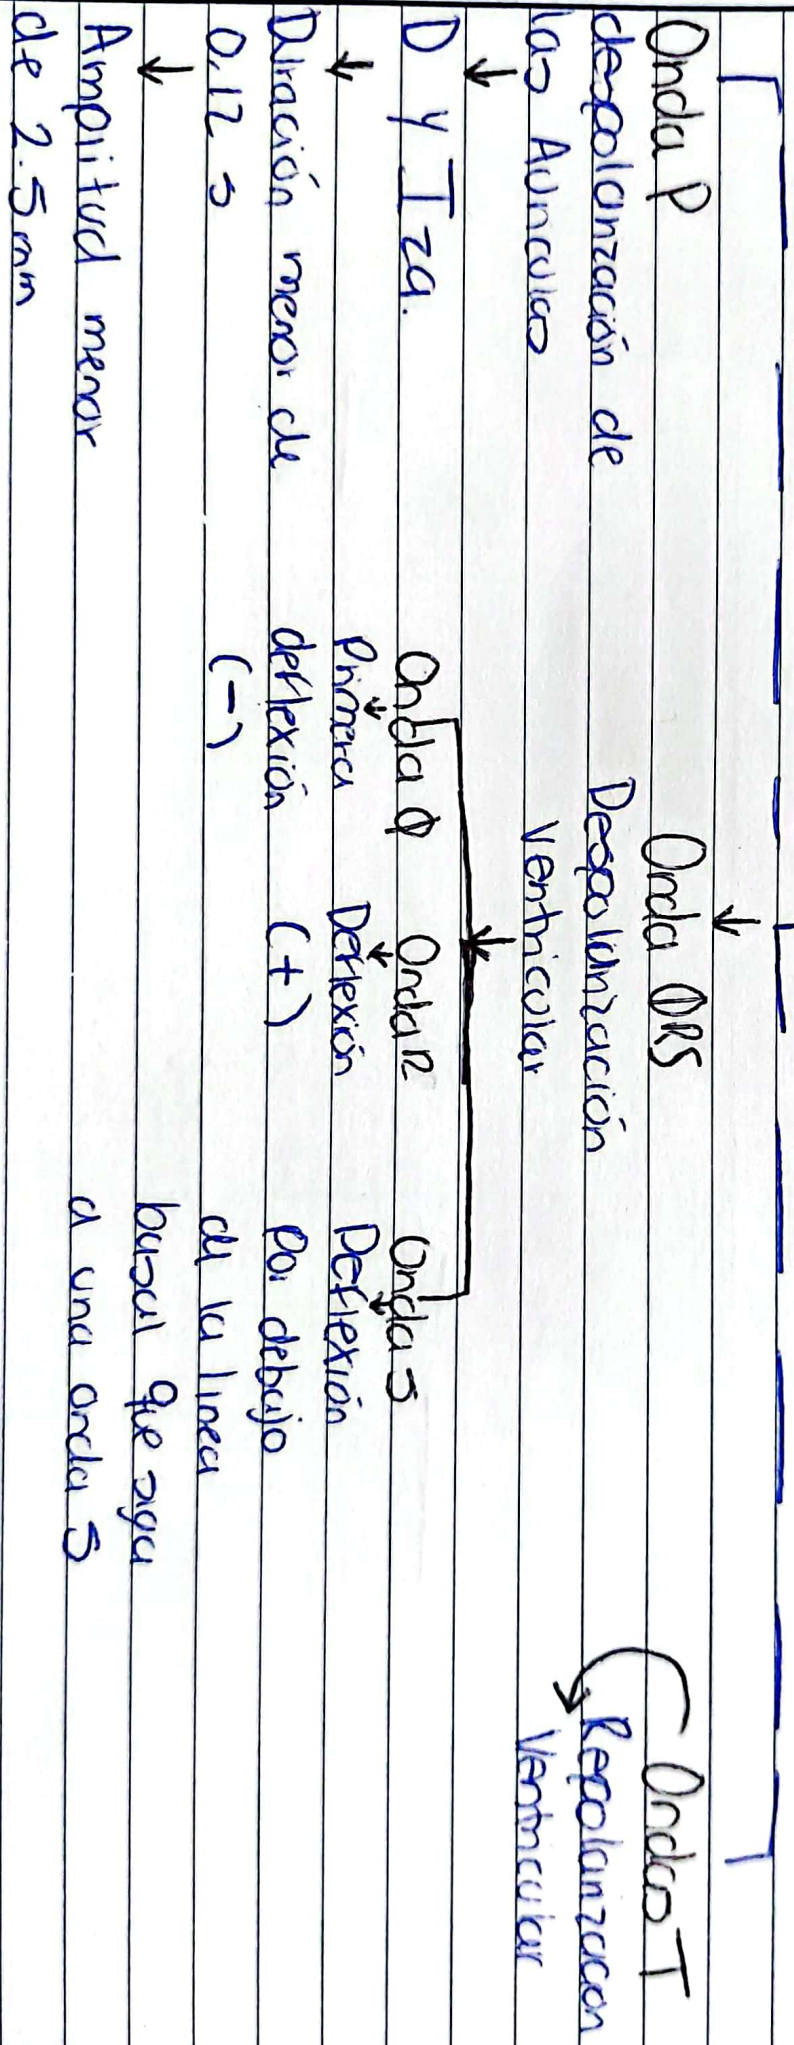 Onda P
despolarización de
las Auriculas
D y Iza.
Duración menor de
0.12 s
Amplitud menor
de 2.5 mm
Onda QRS
Despolarización
ventricular
Onda Q
Primera
deflexión
(-)
Onda R
Deflexión
(+)
Onda S
Deflexión
Por debajo
de la linea
basal que siga
a una onda S
Ondas T
Repolarizacion
Ventricular